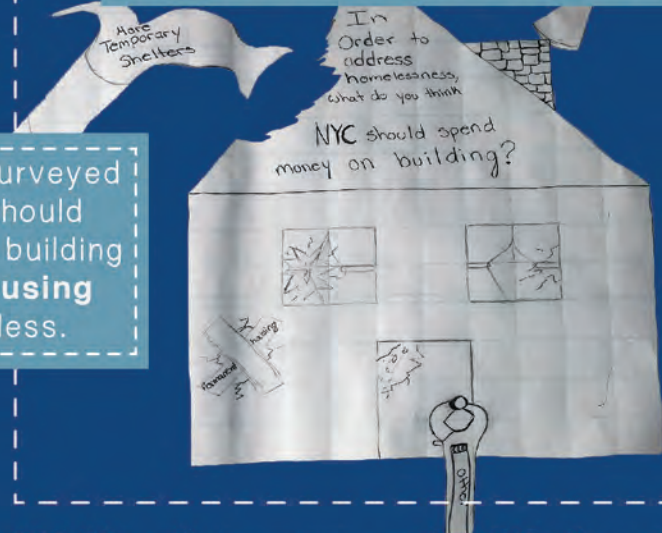 More
Temporary
Shelters
In
Order to
address
homelessness,
what do you think
NYC should spend
money on building?
urveyed
hould
building
using
less.
housing
Permanent
other